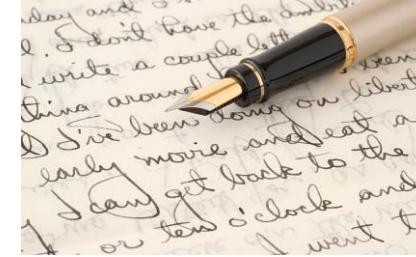 day and
I don't have the ambit
write a couple lett
thing around
I've been doing on libert
early movie and eat a
I can get back to the
or ten o'clock and
I went t